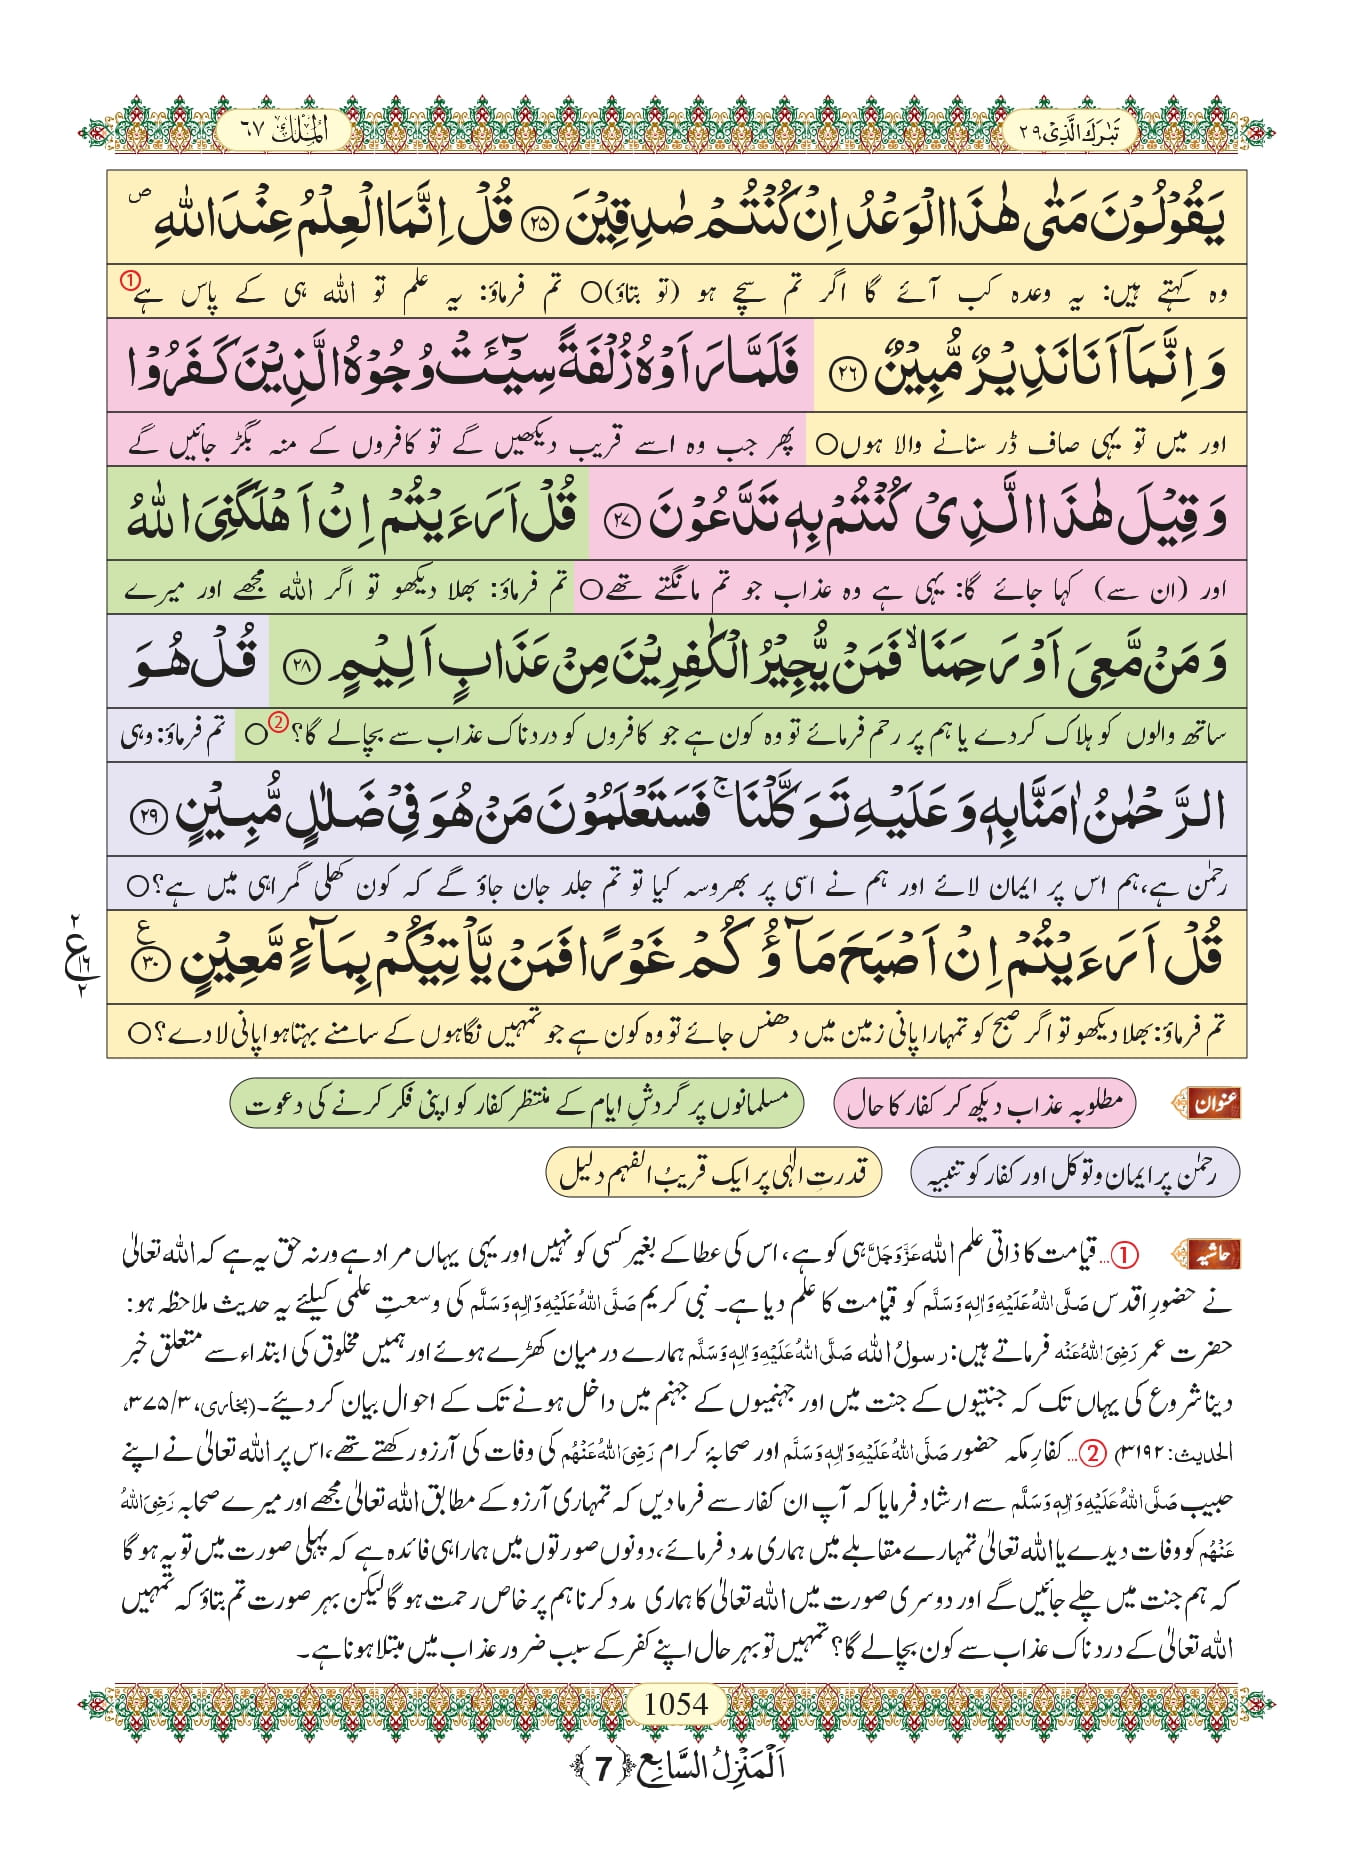 تَبٰرَكَ الَّذِیْ ۲۹
اَلْمُلْك ۶۷
یَقُوْلُوْنَ مَتٰى هٰذَا الْوَعْدُ اِنْ كُنْتُمْ صٰدِقِیْنَ ﴿۲۵﴾ قُلْ اِنَّمَا الْعِلْمُ عِنْدَ اللّٰهِ ۪
وہ کہتے ہیں: یہ وعدہ کب آئے گا اگر تم سچے ہو (تو بتاؤ)○ تم فرماؤ: یہ علم تو اللہ ہی کے پاس ہے①
وَ اِنَّمَاۤ اَنَا نَذِیْرٌ مُّبِیْنٌ ﴿۲۶﴾ فَلَمَّا رَاَوْهُ زُلْفَةً سِیْٓـَٔتْ وُجُوْهُ الَّذِیْنَ كَفَرُوْا
اور میں تو یہی صاف ڈر سنانے والا ہوں○ پھر جب وہ اسے قریب دیکھیں گے تو کافروں کے منہ بگڑ جائیں گے
وَ قِیْلَ هٰذَا الَّذِیْ كُنْتُمْ بِهٖ تَدَّعُوْنَ ﴿۲۷﴾ قُلْ اَرَءَیْتُمْ اِنْ اَهْلَكَنِیَ اللّٰهُ
اور (ان سے) کہا جائے گا: یہی ہے وہ عذاب جو تم مانگتے تھے○ تم فرماؤ: بھلا دیکھو تو اگر اللہ مجھے اور میرے
وَ مَنْ مَّعِیَ اَوْ رَحِمَنَا ۙ فَمَنْ یُّجِیْرُ الْكٰفِرِیْنَ مِنْ عَذَابٍ اَلِیْمٍ ﴿۲۸﴾ قُلْ هُوَ
ساتھ والوں کو ہلاک کردے یا ہم پر رحم فرمائے تو وہ کون ہے جو کافروں کو دردناک عذاب سے بچالے گا؟②○ تم فرماؤ: وہی
الرَّحْمٰنُ اٰمَنَّا بِهٖ وَ عَلَیْهِ تَوَكَّلْنَا ۚ فَسَتَعْلَمُوْنَ مَنْ هُوَ فِیْ ضَلٰلٍ مُّبِیْنٍ ﴿۲۹﴾
رحمٰن ہے، ہم اس پر ایمان لائے اور ہم نے اسی پر بھروسہ کیا تو تم جلد جان جاؤ گے کہ کون کھلی گمراہی میں ہے؟○
قُلْ اَرَءَیْتُمْ اِنْ اَصْبَحَ مَآؤُكُمْ غَوْرًا فَمَنْ یَّاْتِیْكُمْ بِمَآءٍ مَّعِیْنٍ ﴿۳۰﴾ ع
۲ ع ۱۶ ۲
تم فرماؤ: بھلا دیکھو تو اگر صبح کو تمہارا پانی زمین میں دھنس جائے تو وہ کون ہے جو تمہیں نگاہوں کے سامنے بہتا ہوا پانی لا دے؟○
عنوان مطلوبہ عذاب دیکھ کر کفار کا حال مسلمانوں پر گردشِ ایام کے منتظر کفار کو اپنی فکر کرنے کی دعوت
رحمٰن پر ایمان و توکل اور کفار کو تنبیہ قدرتِ الٰہی پر ایک قریبُ الفہم دلیل
حاشیہ ①... قیامت کا ذاتی علم اللہ عَزَّوَجَلَّ ہی کو ہے، اس کی عطا کے بغیر کسی کو نہیں اور یہی یہاں مراد ہے ورنہ حق یہ ہے کہ اللہ تعالیٰ
نے حضورِ اقدس صَلَّى اللهُ عَلَيْهِ وَاٰلِهٖ وَسَلَّم کو قیامت کا علم دیا ہے۔ نبی کریم صَلَّى اللهُ عَلَيْهِ وَاٰلِهٖ وَسَلَّم کی وسعتِ علمی کیلئے یہ حدیث ملاحظہ ہو:
حضرت عمر رَضِىَ اللهُ عَنْه فرماتے ہیں: رسولُ اللہ صَلَّى اللهُ عَلَيْهِ وَاٰلِهٖ وَسَلَّم ہمارے درمیان کھڑے ہوئے اور ہمیں مخلوق کی ابتداء سے متعلق خبر
دینا شروع کی یہاں تک کہ جنتیوں کے جنت میں اور جہنمیوں کے جہنم میں داخل ہونے تک کے احوال بیان کر دیئے۔ (بخاری، ۳/۳۷۵،
الحدیث: ۳۱۹۲) ②... کفارِ مکہ حضور صَلَّى اللهُ عَلَيْهِ وَاٰلِهٖ وَسَلَّم اور صحابۂ کرام رَضِىَ اللهُ عَنْهُم کی وفات کی آرزو رکھتے تھے، اس پر اللہ تعالیٰ نے اپنے
حبیب صَلَّى اللهُ عَلَيْهِ وَاٰلِهٖ وَسَلَّم سے ارشاد فرمایا کہ آپ ان کفار سے فرما دیں کہ تمہاری آرزو کے مطابق اللہ تعالیٰ مجھے اور میرے صحابہ رَضِىَ اللهُ
عَنْهُم کو وفات دیدے یا اللہ تعالیٰ تمہارے مقابلے میں ہماری مدد فرمائے، دونوں صورتوں میں ہمارا ہی فائدہ ہے کہ پہلی صورت میں تو یہ ہوگا
کہ ہم جنت میں چلے جائیں گے اور دوسری صورت میں اللہ تعالیٰ کا ہماری مدد کرنا ہم پر خاص رحمت ہوگا لیکن بہر صورت تم بتاؤ کہ تمہیں
اللہ تعالیٰ کے دردناک عذاب سے کون بچالے گا؟ تمہیں تو بہر حال اپنے کفر کے سبب ضرور عذاب میں مبتلا ہونا ہے۔
1054
اَلْمَنْزِلُ السَّابِع ﴿7﴾